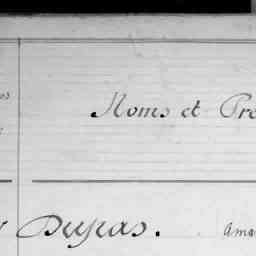 Noms et Pré
Dupas. Ama